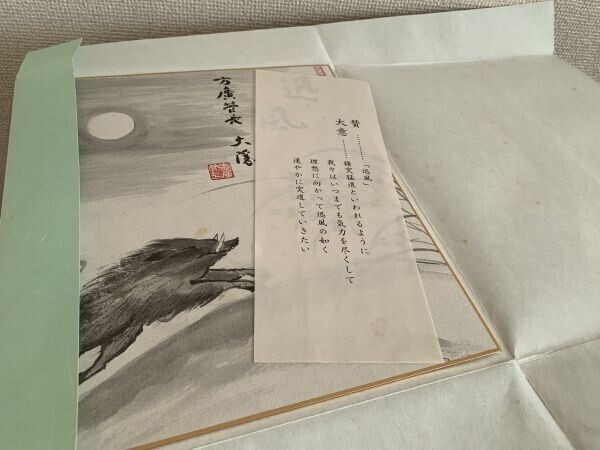 方廣管長
大隠
賛…………「迅風」
大意………猪突猛進といわれるように
我々はいつまでも気力を尽くして
理想に向かって迅風の如く
速やかに突進していきたい